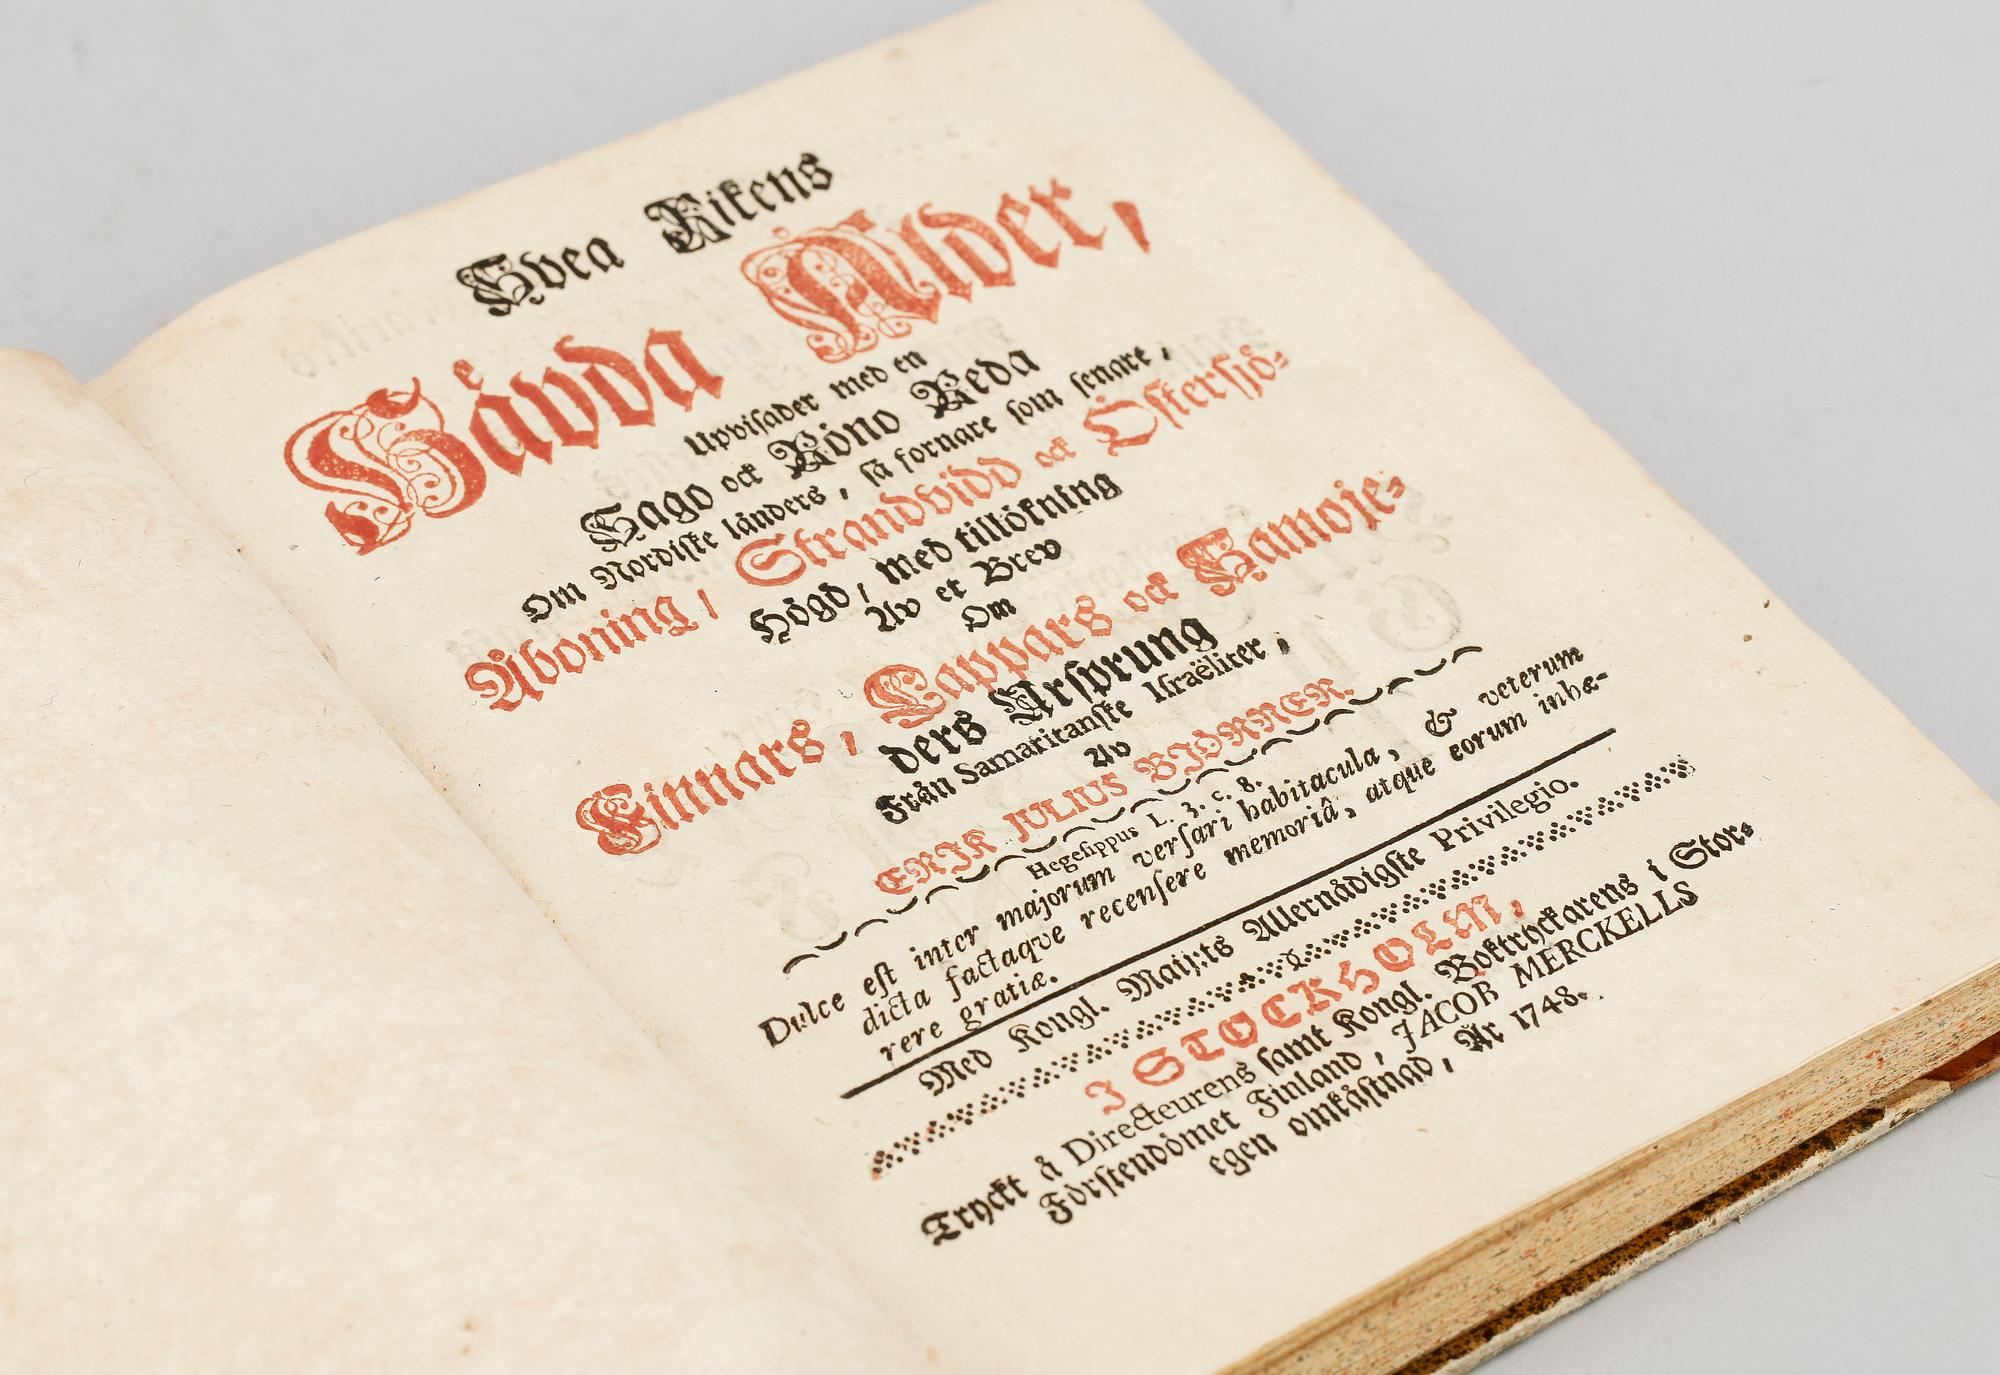 Svea Rikens
Håvda Ålder,
Upvisader med en
Sago ock Rôno Reda
Om Nordiske länders, så fornare som senare,
Åboning, Strandvidd ock Östersjö-
Högd, med tillökning
Av et Brev
Om
Finnars, Lappars ock Samoje-
ders Ursprung
Från Samaritanske Israëliter,
Av
ERIK JULIUS BIÖRNER.
Hegesippus L. 3. c. 8.
Dulce est inter majorum versari habitacula, & veterum
dicta factaqve recensere memoriâ, atque eorum inhæ-
rere gratiæ.
Med Kongl. Maij:ts Allernådigste Privilegio.
I STOCKHOLM,
Tryckt å Directeurens samt Kongl. Boktryckarens i Stor-
Förstendömet Finland, JACOB MERCKELLS
egen omkåstnad, År 1748.